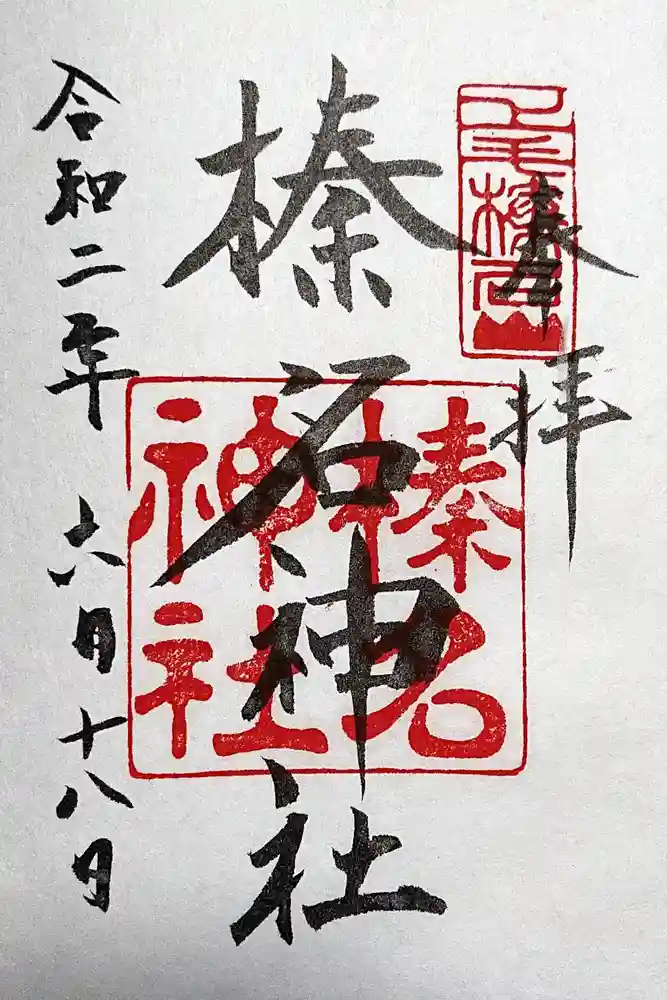 奉拝
榛名神社
榛名
神社
令和二年 六月十八日